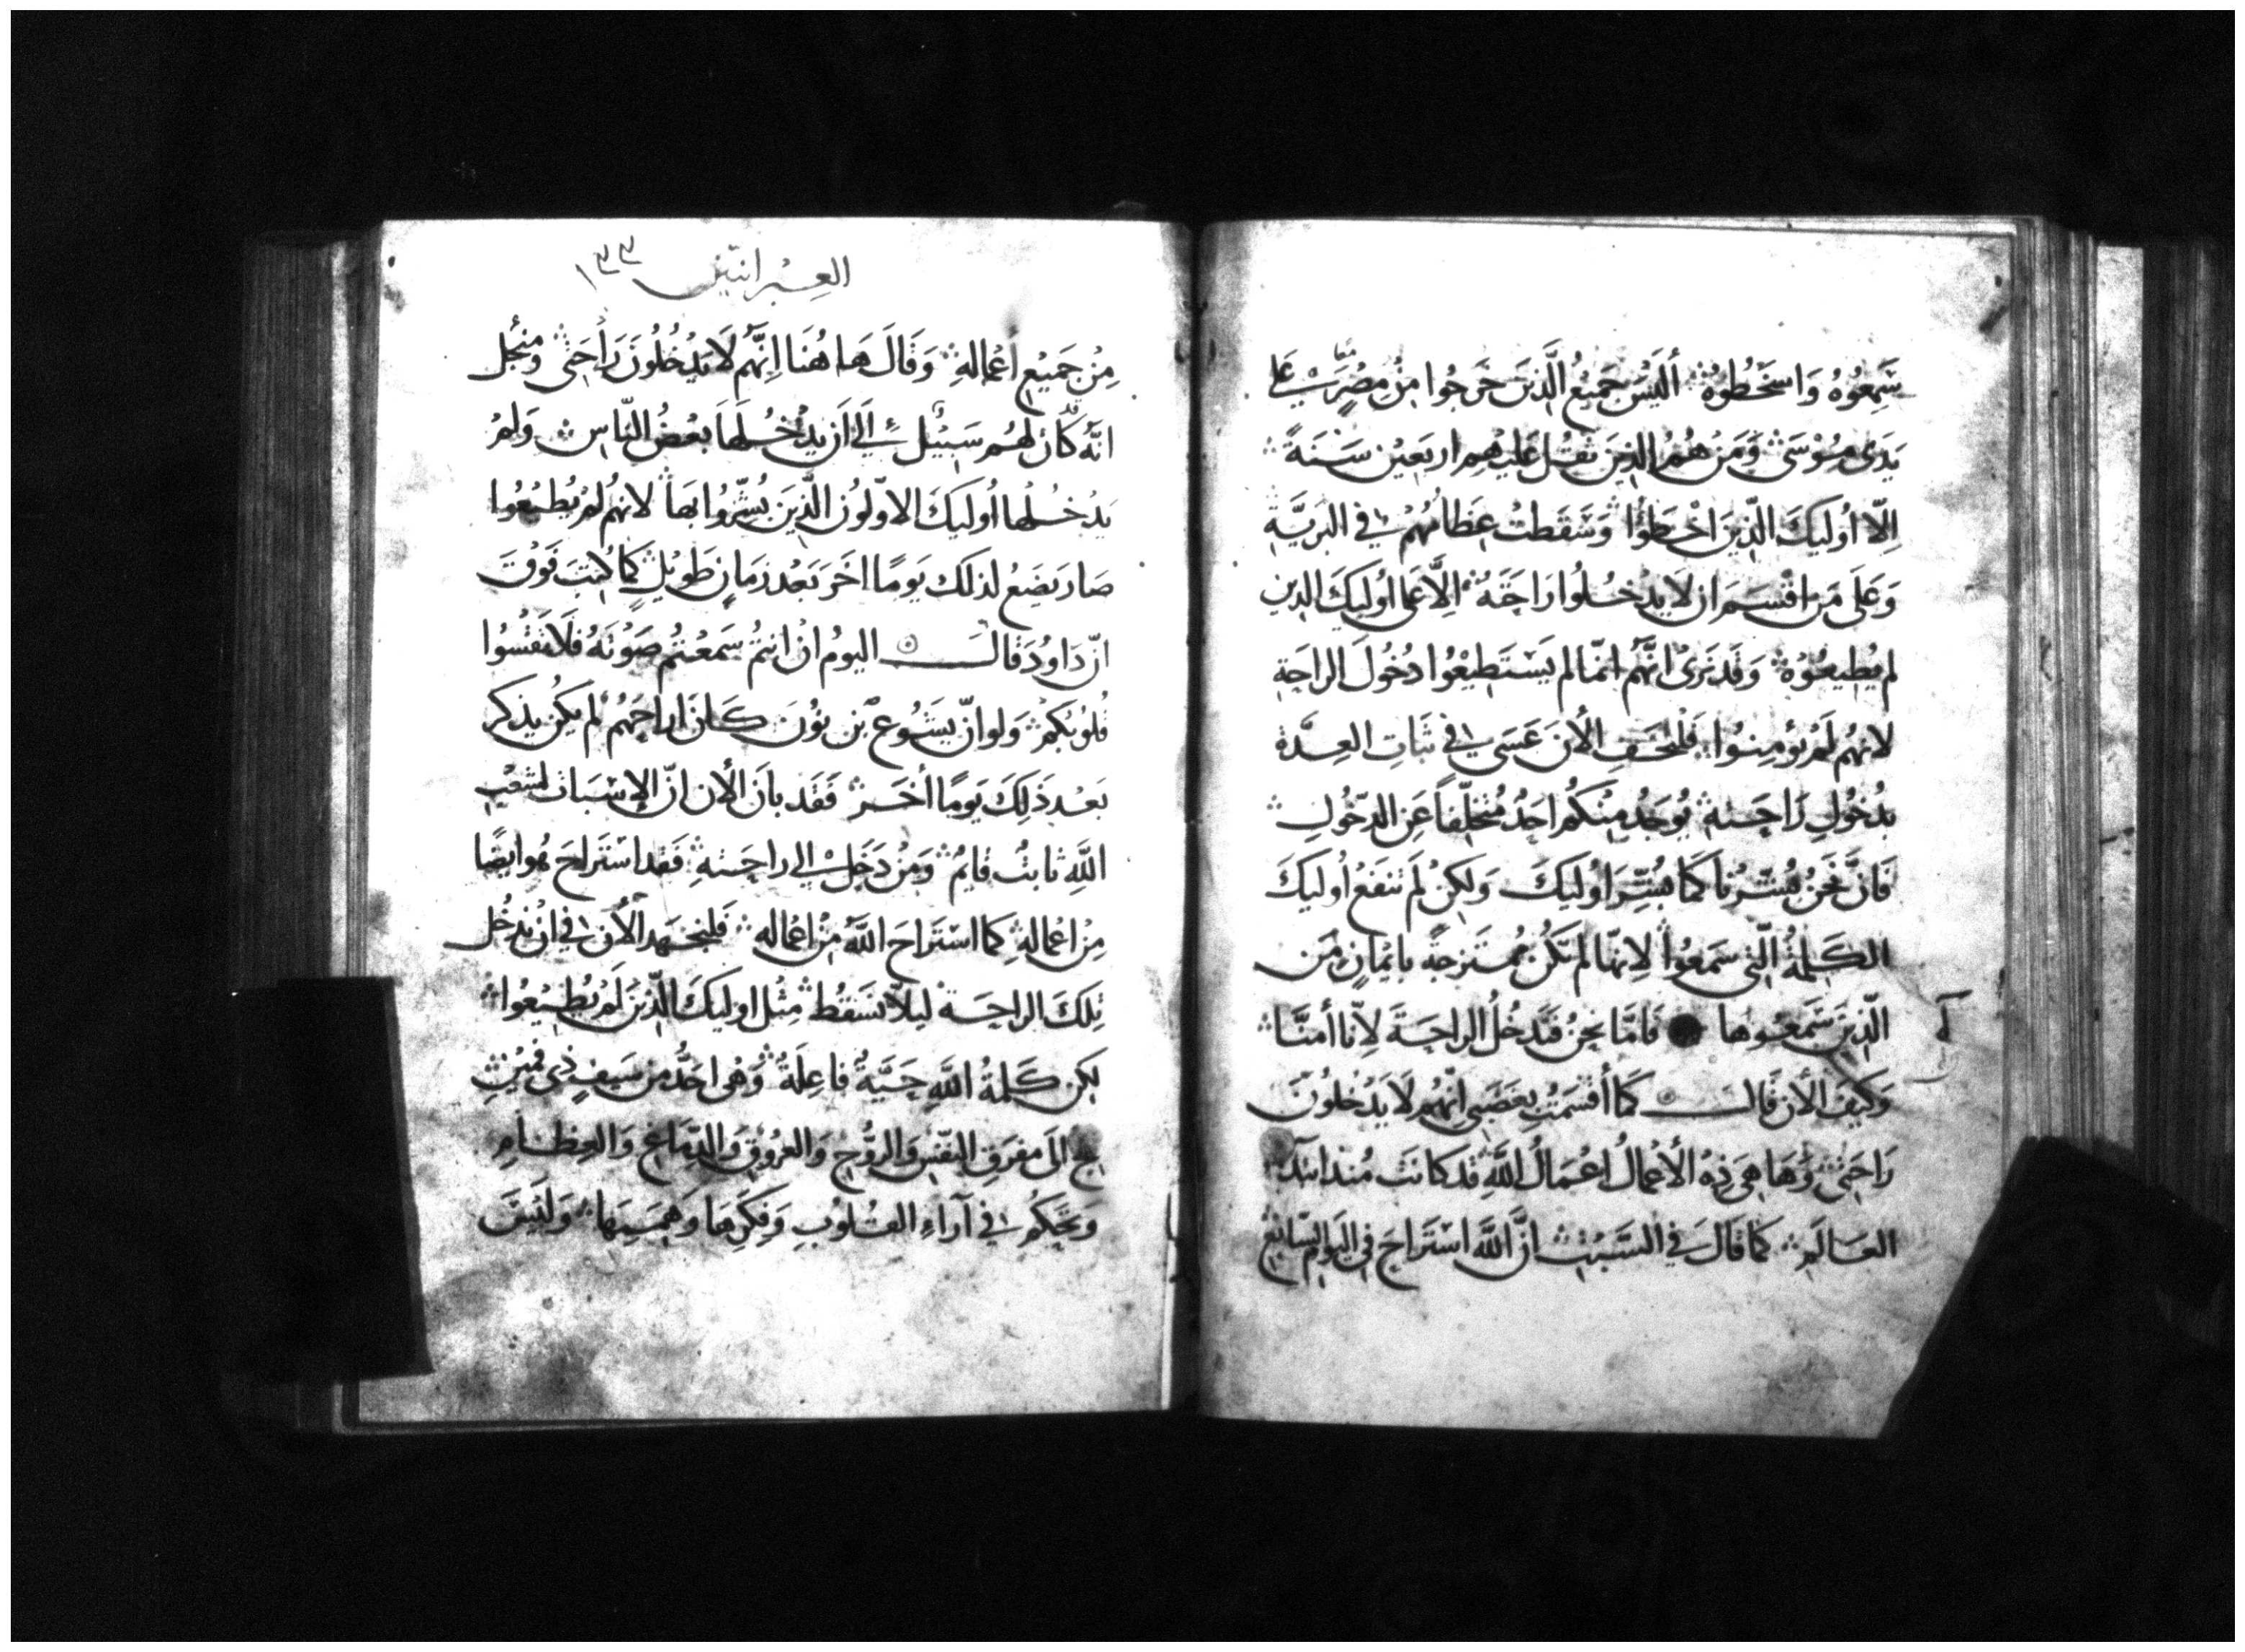 سَمِعُوُهُ وَاسخَطُوهُ ۞ أليَسْ جَميْعُ الَّذينَ خَرجُوا مِنْ مِصْرَ عَلى
يَدَى مُوْسَىَ ۞ وَمَنْ هُمُ الذينَ ثقُل عَليْهم اربَعيْن سَنَةً ۞
اِلّا اُوليكَ الّذينَ اخْطَؤُا ۞ وَسَقَطتْ عِظَامُهُمْ في البَريَّةِ
وَعَلى مَن اقْسَمَ ان لا يدْخُلُوا رَاحَتَهُ ۞ الّا عَلى اُوليَكَ الذين
لم يُطيعُوْهُ ۞ وَقَد نَرىَ انَّهُم انمّا لم يَسْتَطيْعُوا دُخُولَ الراحَةِ
لانهُم لَمْ يؤمِنوُا ۞ فَلْنخَفِ الأنَ عَسَى في ثَباتِ العِدَّة
بدُخُولِ رَاحَتهِ ۞ يُوجَدُ مِنْكُم احَدٌ مُتخَلّفاً عَنِ الدّخُولِ ۞
فَانَّ نَحْنُ بُشّرْنا كَمَا بُشِّرَ اوُليَكَ وَلكِنْ لم تنفَعْ اُوليَكَ
الكَلِمَةُ الّتي سَمعُوا ۞ لانّها لم تكُنْ مُمتَزجةً بايْمَانٍ مِن
الّذينَ سَمعُوهَا ● فَامَّا نحنُ فَنَدخُلُ الراحَةَ لِانّا أمنَّا ۞
وَكيْفَ الأن قَالَ ۞ كَمَا أُقْسَمتُ بِغَضَبي اِنّهُم لَا يَدْخُلوُنَ
رَاحَتي ۞ وَهَا هِىَ ذِهِ الأعْمَالُ اعْمَالُ اللَّهِ قد كَانَت مُند ابتدآء
العَالَم ۞ كمَا قَالَ في السَّبْتِ ۞ انَّ اللَّهَ اسْتَراحَ في اليَوم السّابع
العِبْرانيّين ١٣٣
مِنْ جَميْع أعْمالِهِ ۞ وَقَالَ هَا هُنَا اِنَّهُم لا يَدْخُلُونَ رَاحَتي ۞ ومنْجْل
انّهُ كَان لهُم سَبيْل الىَ اَن يدْخُلهَا بعْضُ النّاس ۞ وَلمْ
يَدْخُلها اُوليكَ الاوّلوُن الَّذينَ بُشّرُوا بهَا ۞ لانهُم لمْ يُطيْعُوا
صَار يَضَعُ لذلك يَومًا اخَر بَعْد زمَانٍ طَويْلٍ ۞ كمَا كُتبَ فَوْقَ
انّ دَاوُدَ قالَ ۞ اليوْم ان انتمُ سَمعْتمُ صَوْتَهُ فلَا تقْسُوا
قُلوُبكُمْ ۞ وَلو انّ يَشُوعَ بْن نوُنَ كَانَ اراحَهُم لم يكُن يذكر
بَعْد ذَلِكَ يَومًا أخَر ۞ فَقَد بانَ الأن انّ الاِسْبَاتَ لشعْبِ
اللَّهِ ثابتٌ قايمٌ ۞ وَمَنْ دَخَلَ الى راحَتهِ ۞ فَقَد اسْتَراحَ هُو ايضًا
مِنْ اعْمالهِ ۞ كما اسْتَراحَ اللَّهُ مِنْ اعْمالهِ ۞ فَلنجتَهد الأنَ في انْ نَدخُل
تِلكَ الراحَةَ ۞ ليلاّ نَسَقُط ۞ مِثْل اوليكَ الّذينَ لَم يُطيْعُوا ۞
لكن كَلمةُ اللَّهِ حَيَّةٌ فاعِلَةٌ ۞ وَهُو احَدُّ من سَيفٍ ذي فمَيْنِ
يلج الىَ مفْرَقِ النفْسِ وَالرُّوْحِ وَالعُروُقِ وَالدِّمَاغِ وَالعِظَامِ
وَيَحكُم في آراءِ القُلوُبِ وَفِكرِهَا وَهِمَمِهَا ۞ وَليْسَ